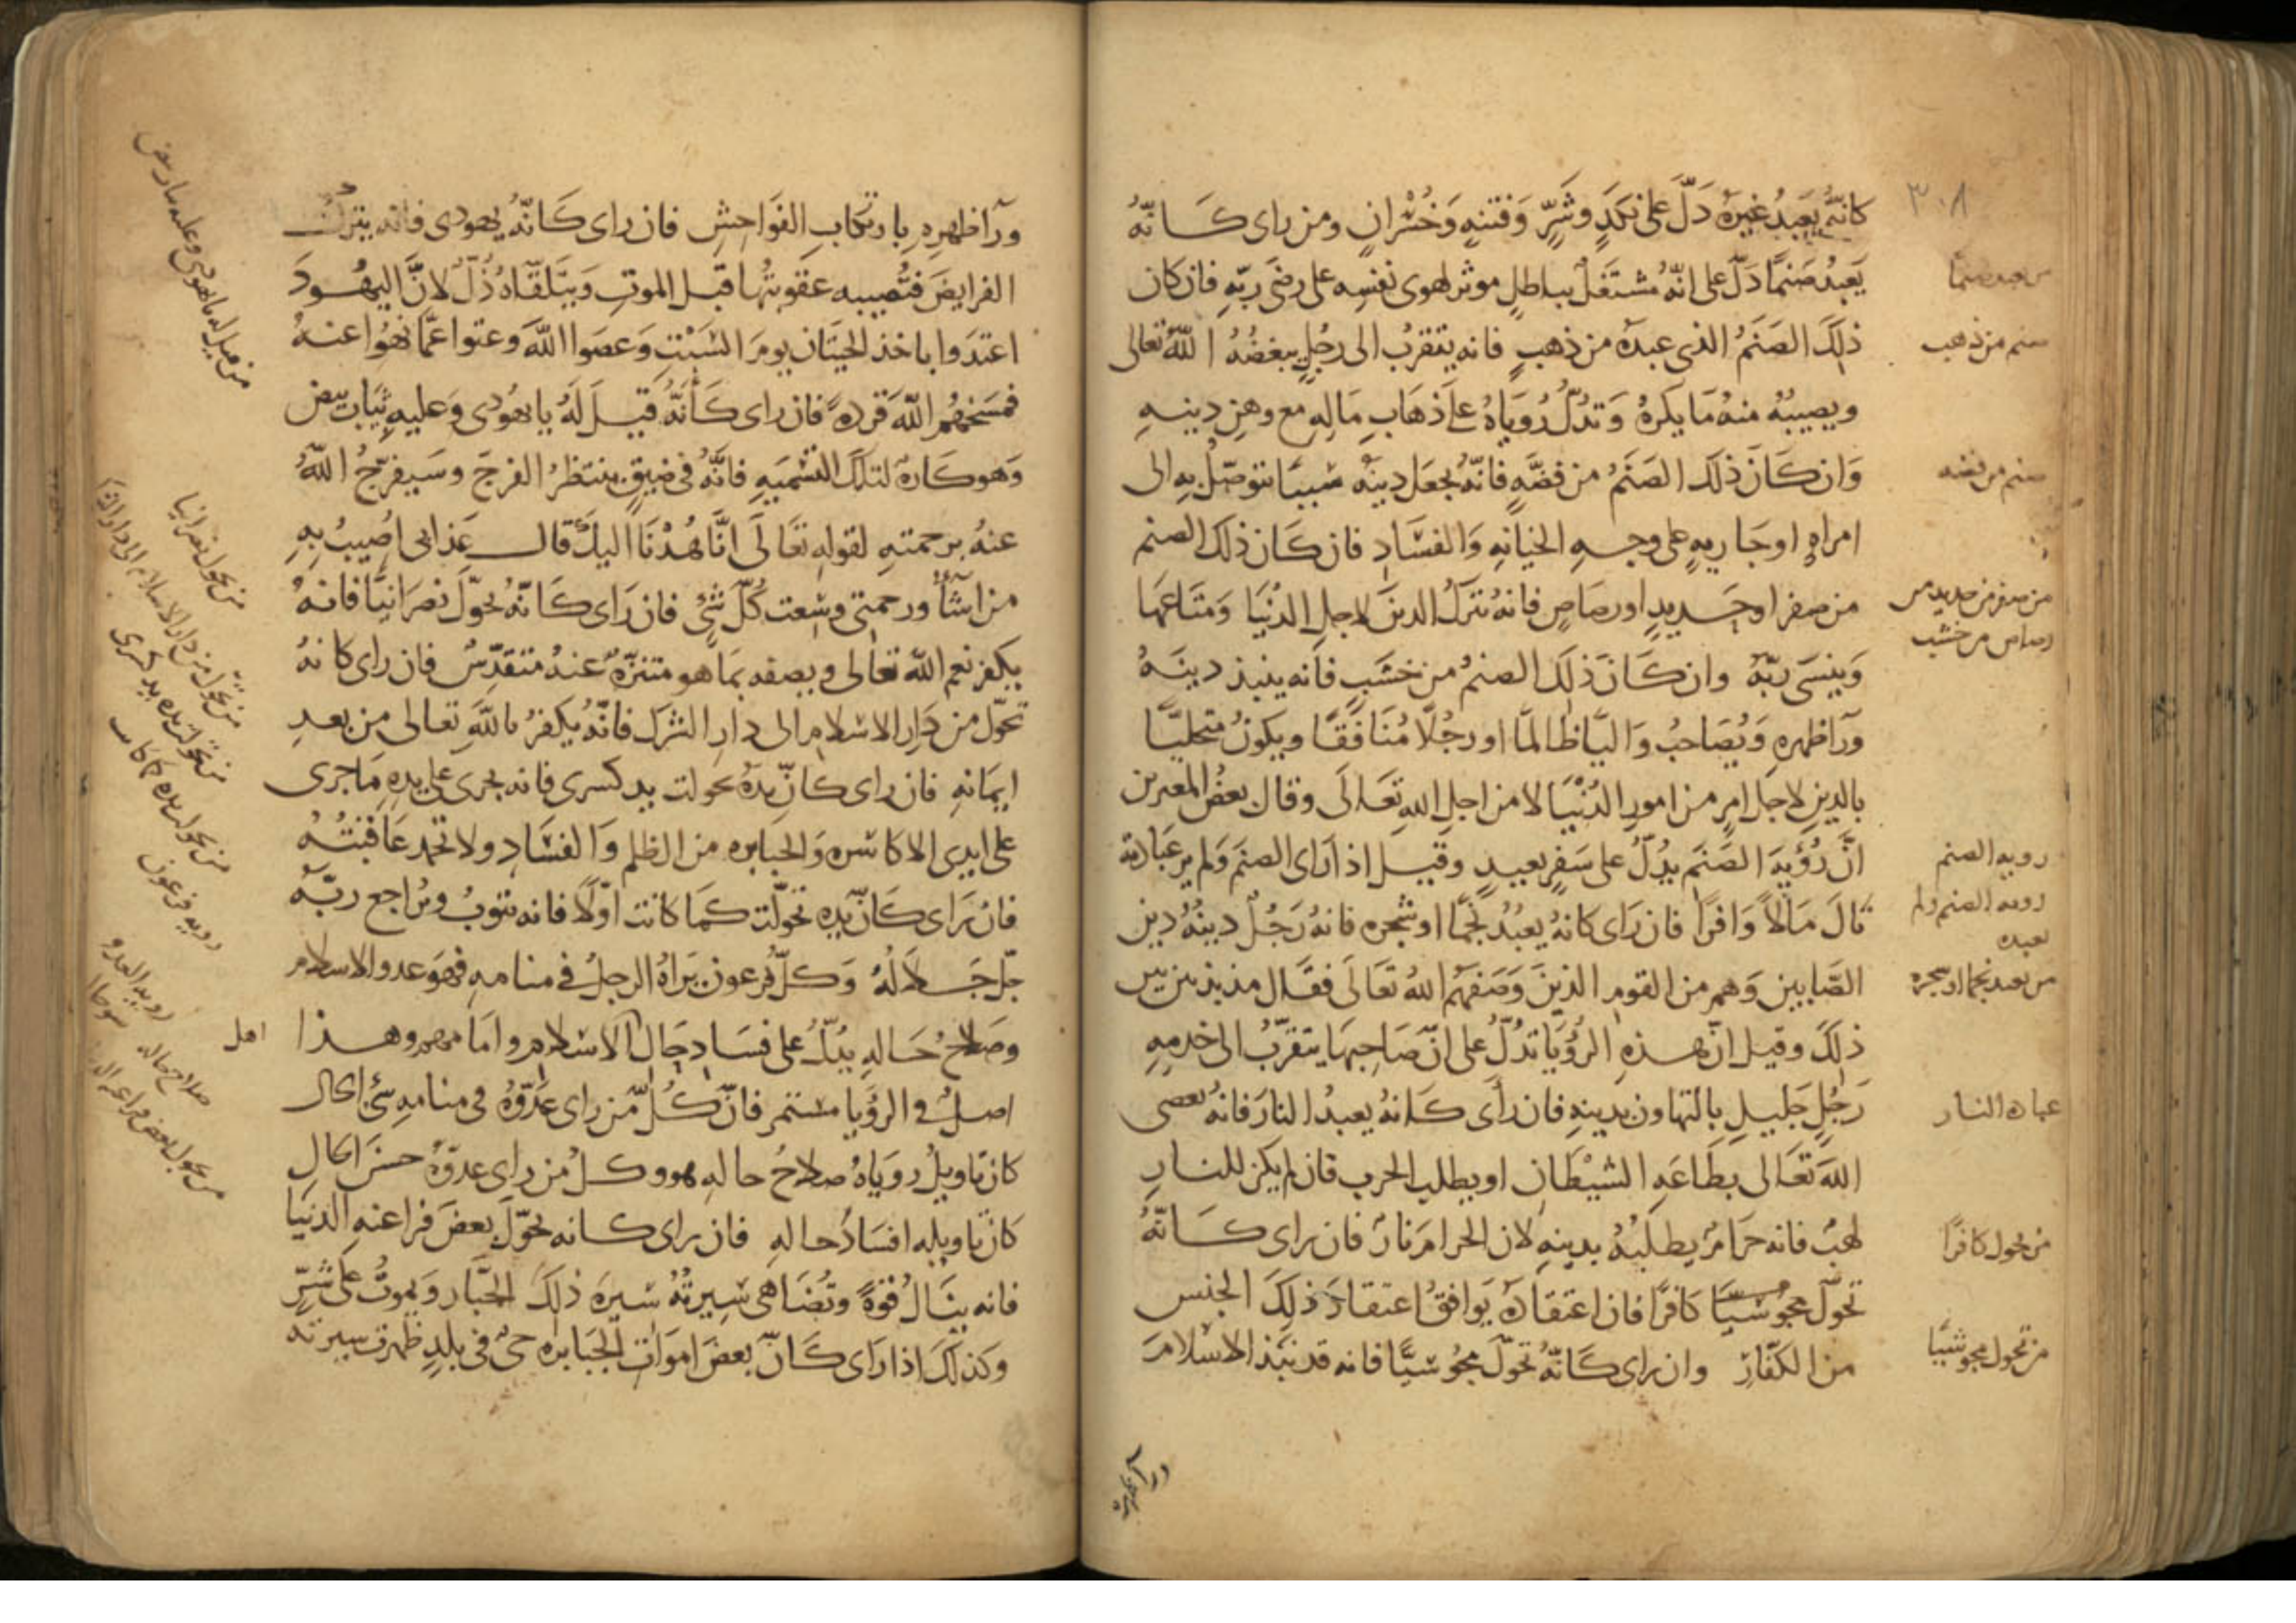 ٣٠٨
كانه يعبد غيره دَلّ على نكدٍ وشَرٍّ وَفتنهٍ وَخُسْرانٍ ومن راى كانّهُ
يَعبُد صَنمًا دَلّ على انّهُ مُشتغلٌ بباطلٍ موثر لهوى نفسِه على رضَى ربّهِ فان كان
ذلكَ الصَنَمُ الذى عبدهُ من ذهبٍ فانه يتقرب الى رجُلٍ يبغضُهُ اللّهُ تعالى
ويصيبُهُ منهُ مَا يكرهُ وَتدُلّ رُوياهُ على ذهَابِ مَالِهِ مع وهن دِينهِ
وَان كَانَ ذلكَ الصَنَمُ من فضّهٍ فانّهُ يجعَل دينهُ سَببًا يتوصّلُ بهِ الى
امراهٍ اوجَاريهٍ على وجهِ الخيانهِ وَالفسَادِ فان كَان ذلكَ الصنم
من صفرا وحَديدٍ اورصَاصٍ فانهُ يترك الدينَ لاجلِ الدُنيَا وَمتَاعهَا
وَينسَى ربّهُ وان كَانَ ذلكَ الصنمُ من خشبٍ فانه ينبذ دينهُ
ورآ ظهره وَيُصَاحبُ وَاليًا ظالمًا اورجُلًا مُنَافقًا ويكونُ متحليًا
بالدينِ لاجل امرٍ من امورِ الدُنْيَا لا من اجلِ اللهِ تعَالَى وقال بعضُ المعبرين
انَّ رُؤْيَهَ الصَنَم يدُلّ على سَفرٍ بعيدٍ وقيل اذا رَاى الصنَم وَلم ير عبَادته
نالَ مَالاً وَافرًا فان رَاى كانهُ يعبُدُ نجمًا اوشجره فانهُ رَجُلٌ دينُهُ دين
الصّابيين وَهم من القومِ الذينَ وَصَفهُم اللهُ تعَالَى فقَال مذبذبين بين
ذلكَ وقيل انّ هذهِ الرُؤيَا تدُلّ على انّ صَاحبهَا يتقرّبُ الى خدمهِ
رَجُلٍ جَليلٍ بالتهاون بدينهِ فان رأى كَانهُ يعبدُ النارَ فانهُ يعصى
اللهَ تعَالى بطَاعَهِ الشيْطان اويطلب الحرب فان لم يكن للنارِ
لهبٌ فانه حرَامٌ يطلبُهُ بدينهِ لان الحرامَ نارٌ فان راى كَانّهُ
تحوّل مجُوسيًا كافرًا فان اعتقادهُ يَوافقُ اعتقادَ ذلكَ الجنس
من الكفّارِ وان راى كَانّهُ تحوّلَ مجُوسيًا فانه قد نبَذَ الاسْلامَ
من عبد صنمًا
صنم من ذهب
صنم من فضه
من صفر من حديد من
رصاص من خشب
رويه الصنم
رويه الصنم ولم
يعبده
من يعبد نجما او شجره
عباده النار
من تحول كافرًا
من تحول مجوسيًا
ورآ ظهرِهِ بارتكابِ الفوَاحشِ فان راى كَانّهُ يهودى فانه يتركُ
الفرايضَ فتُصيبه عقوبتُها قبل الموتِ وَيتَلقّاهُ ذُلّ لانَّ اليهُودَ
اعتدَوا باخذ الحيتَان يومَ السَبْتِ وَعصَوا اللّهَ وعتوا عمَّا نهُوا عنهُ
فمسَخهُم اللّهَ قردهً فان راى كَانّهُ قيلَ لَهُ يا يهُودى وَعليهِ ثيَاب بيض
وَهو كَارهٌ لتلكَ التسْميَهِ فانّهُ فى ضيقٍ ينتظرُ الفرجَ وسَيفرّجُ اللّهُ
عنهُ برحمتهِ لقولهِ تعَالَى انّا هُدْنَا اليكَ قال عَذابى اصُيبُ بهِ
من اشَآءُ ورحمتى وسِعت كُلّ شئٍ فان رَاى كَانّهُ تحوّلَ نصرَانيًا فانهُ
يكفر نعم اللهِ تعالى ويصفه بمَا هو متنزّهٌ عنهُ متقدّسٌ فان راى كانهُ
تحوّل من دَارِ الاسْلامِ الى دارِ الشرك فانّهُ يكفرُ باللّهِ تعالى من بعدِ
ايمَانهِ فان راى كانّ يدهُ تحولت يد كسرى فانه يجرى على يدِهِ مَا جرى
على ايدى الاكاسره وَالجبابره من الظلمِ وَالفسَادِ ولا تحمد عَاقبتُهُ
فان راى كانّ يده تحوّلت كمَا كانت اوّلاً فانه يتوبُ ويُراجع ربّهُ
جّل جَلالهُ وَكلّ فرعون يرَاهُ الرجلُ فى منامهِ فهوَ عدو الاسلام
وصَلاحُ حَالهِ يدُلُّ على فسَادِ حَالِ الاسْلامِ وامَا وهذا
اصلٌ فى الرؤيا مستمر فانّ كُلّ مَن راى عَدُوَّهُ فى منامهِ سئ الحال
كان تاويلُ روياهُ صلاحُ حالهِ وكلُ من راى عدوّهُ حسَن الحالِ
كان تاويله افسَادُ حالهِ فان راى كانه تحوّلَ بعضَ فراعنهِ الدنيَا
فانه ينَالُ قوةً وتُضَاهى سيرتُهُ سيرهَ ذلكَ الجبَّار وَيموتُ على شرٍّ
وكذلكَ اذا رَاى كَانّ بعضَ امواتِ الجَبابرهِ حىٌّ فى بلدٍ ظهرت سيرته
من قيل له يا يهودى وعليه ثياب بيض
من تحول نصرانيا
من تحول من دار الاسلام الى دار
من تحول يده يد كسرى
من تحول يده كما كانت
رويه فرعون
رويه العدو
صلاح حاله
من تحول بعض فراعنه